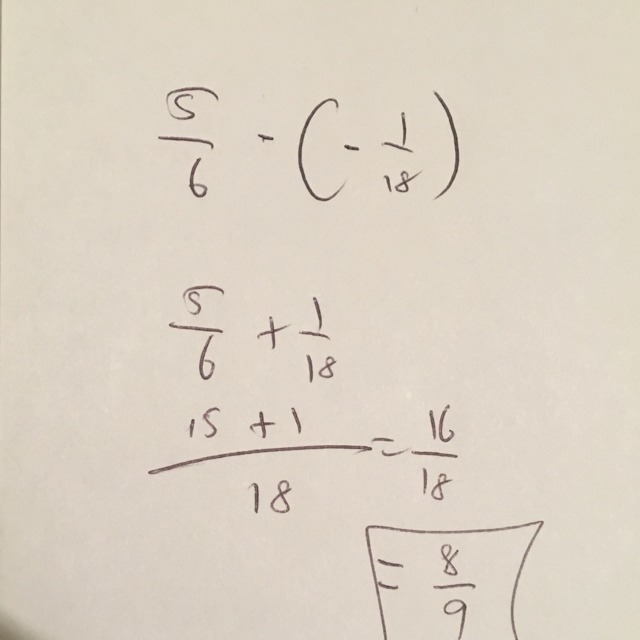 5/6 - (- 1/18)
5/6 + 1/18
15 + 1/18 = 16/18
= 8/9